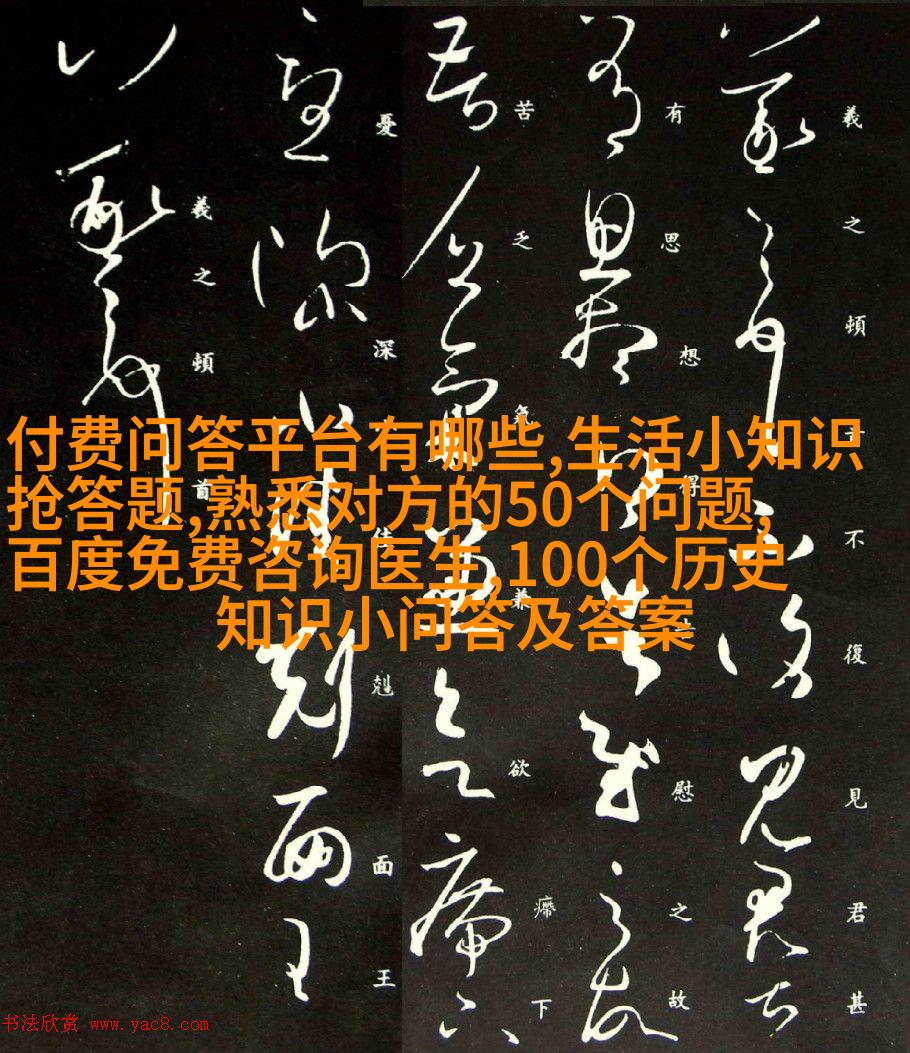 付费问答平台有哪些,生活小知识
抢答题,熟悉对方的50个问题,
百度免费咨询医生,100个历史
知识小问答及答案
羲之頓不復見君甚
有思想得慰之故
苦乏氣兼欲下
憂深佳剋面王
羲之頓首
书法欣赏 www.yac8.com